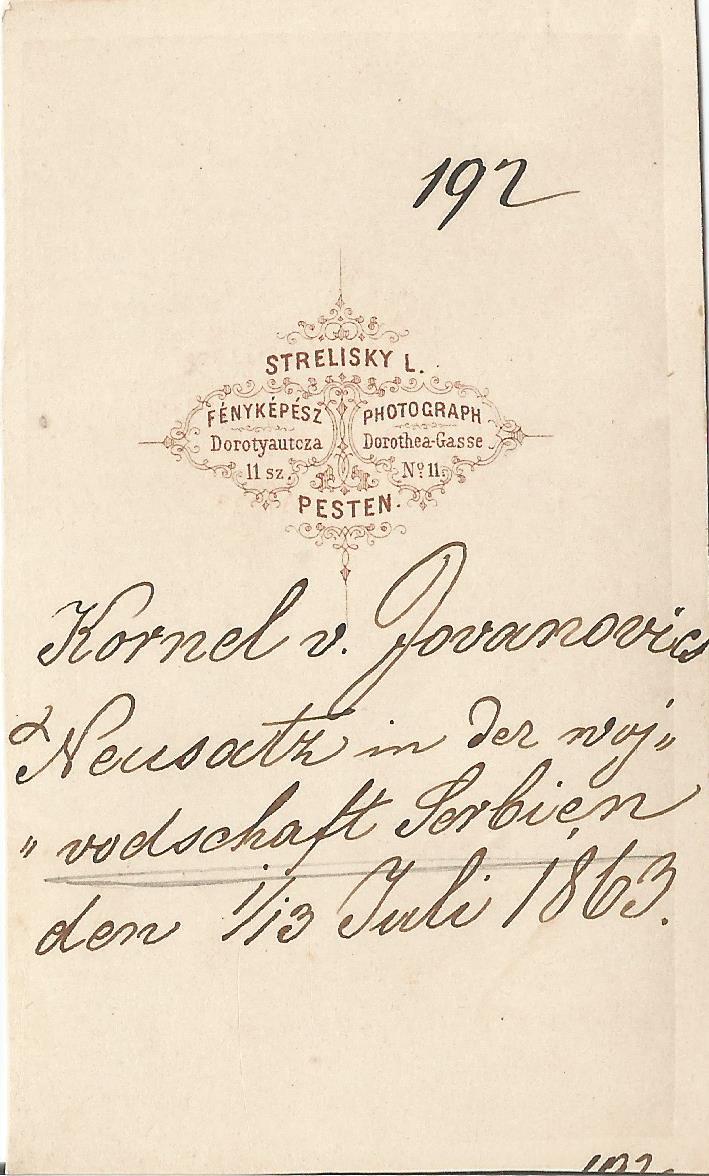 192
STRELISKY L.
FÉNYKÉPÉSZ PHOTOGRAPH
Dorotyautcza Dorothea-Gasse
11 sz. No 11.
PESTEN.
Kornel v. Jovanovics
Neusatz in der woj„
„vodschaft Serbien
den 1/13 Juli 1863.